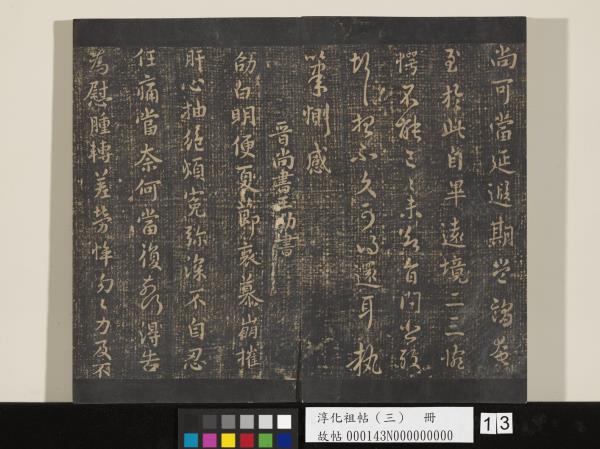 尚可當延遐期豈謂奄
至於此自畢遠境二三惋
愕不能已已未省問
不久可得還耳執
筆惻感
晉尚書王劭書
劭白明便夏節哀慕崩摧
肝心抽絕煩冤彌深不自忍
任痛當奈何當復得告
為慰腫轉差勞悴匆匆力及不
淳化祖帖(三) 冊
故帖 000143N000000000
13